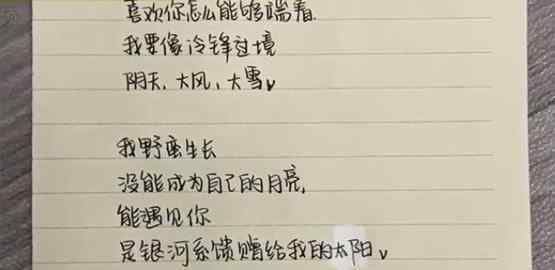 喜欢你怎么能够端着.
我要像冷锋过境
阴天,大风,大雪,
我野蛮生长
没能成为自己的月亮,
能遇见你
是银河系馈赠给我的太阳、